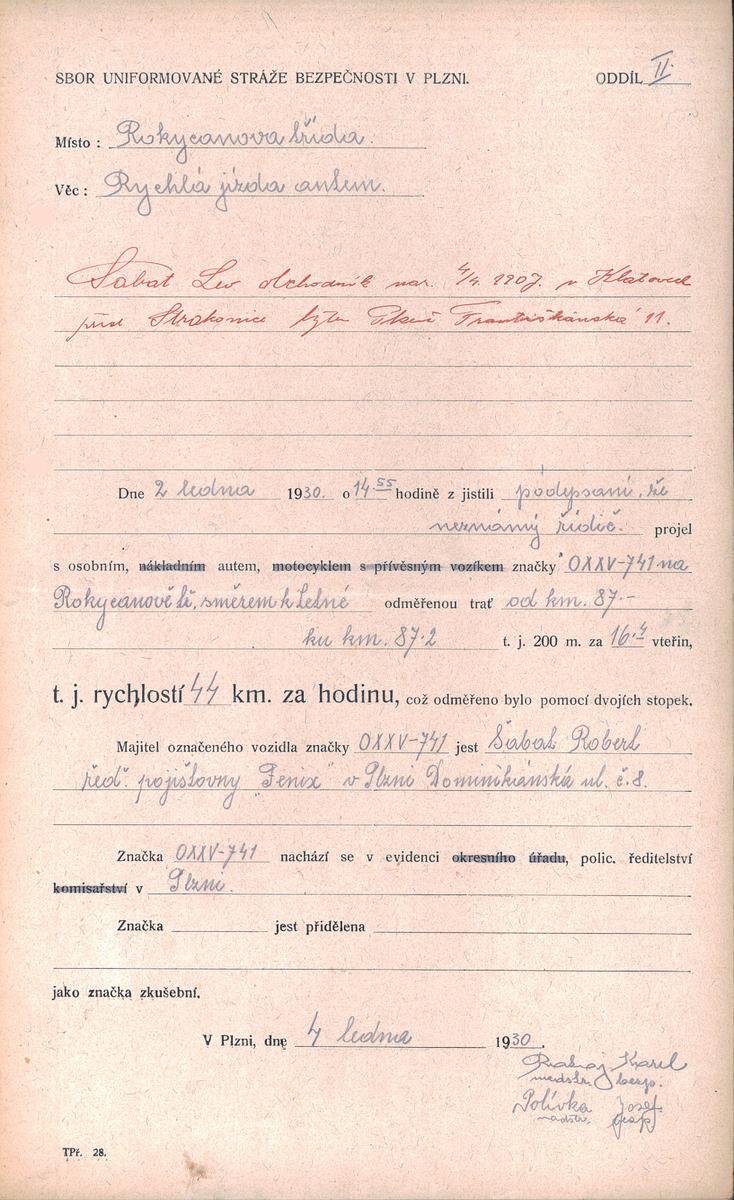 SBOR UNIFORMOVANÉ STRÁŽE BEZPEČNOSTI V PLZNI. ODDÍL II.
Místo: Rokycanova třída.
Věc: Rychlá jízda autem.
Šabat Lev obchodník nar. 4/4 1907. v Klatovech
přísl Strakonice bytem Plzeň Františkánská 11.
Dne 2 ledna 1930. o 14.55 hodině z jistili podepsaní, že
neznámý řidič. projel
s osobním, nákladním autem, motocyklem s přívěsným vozíkem značky OXXV-741 na
Rokycanově tř., směrem k Letné odměřenou trať od km. 87.-
ku km. 87.2 t. j. 200 m. za 16.4 vteřin,
t. j. rychlostí 44 km. za hodinu, což odměřeno bylo pomocí dvojích stopek.
Majitel označeného vozidla značky OXXV-741 jest Šabat Robert
řed. pojišťovny „Fenix" v Plzni Dominikánská ul. č. 8.
Značka OXXV-741 nachází se v evidenci okresního úřadu, polic. ředitelství
komisařství v Plzni.
Značka jest přidělena
jako značka zkušební.
V Plzni, dne 4 ledna 1930.
Karel
Polívka Josef
TPř. 28.